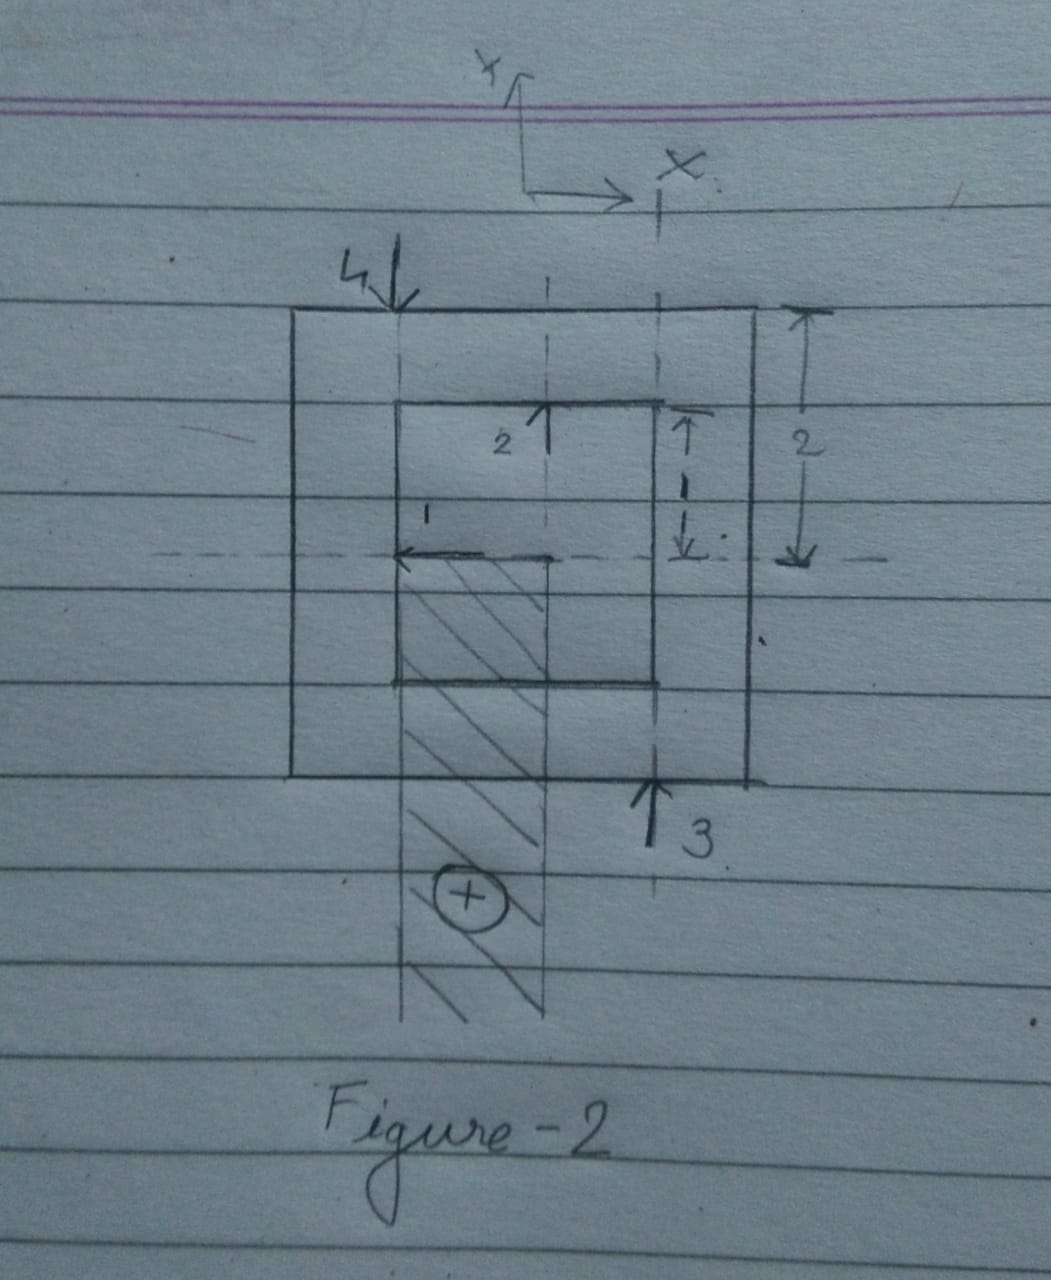 Y
X
4
2
1
1
2
3
+
Figure-2